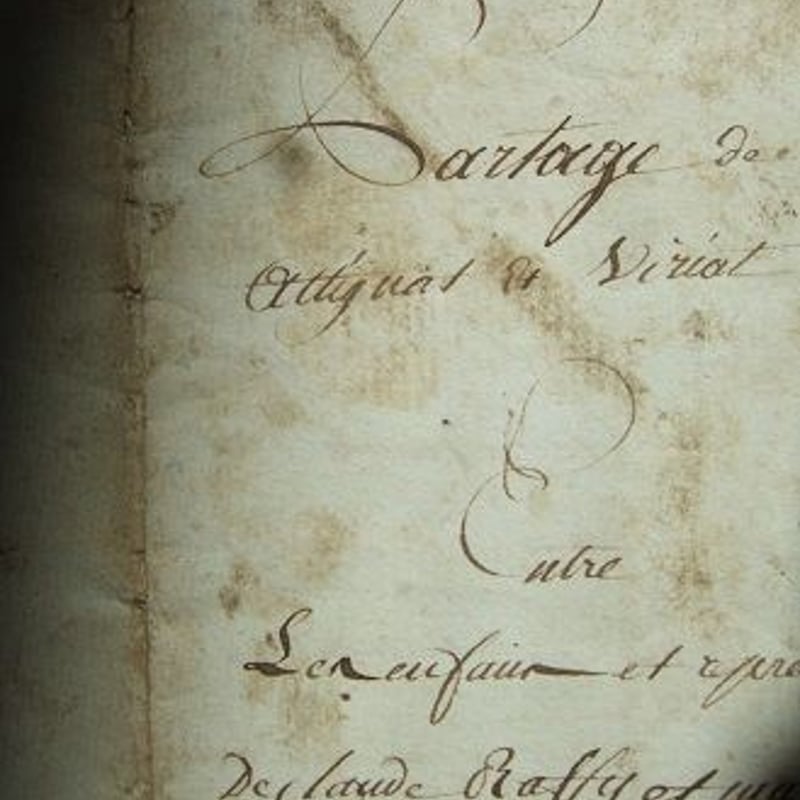 Partage de
Attignat et Viriat
Entre
Les enfans et repré
De Claude Raffy et